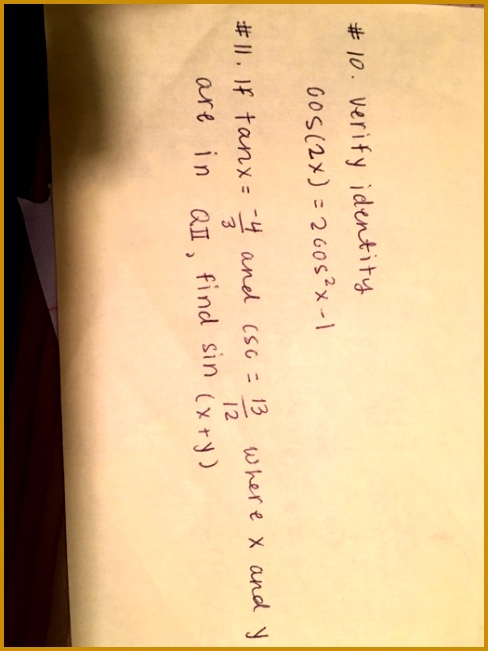 # 10. verify identity
cos(2x) = 2cos²x - 1
# 11. If tanx = -4/3 and csc = 13/12 where x and y
are in QII, find sin (x+y)